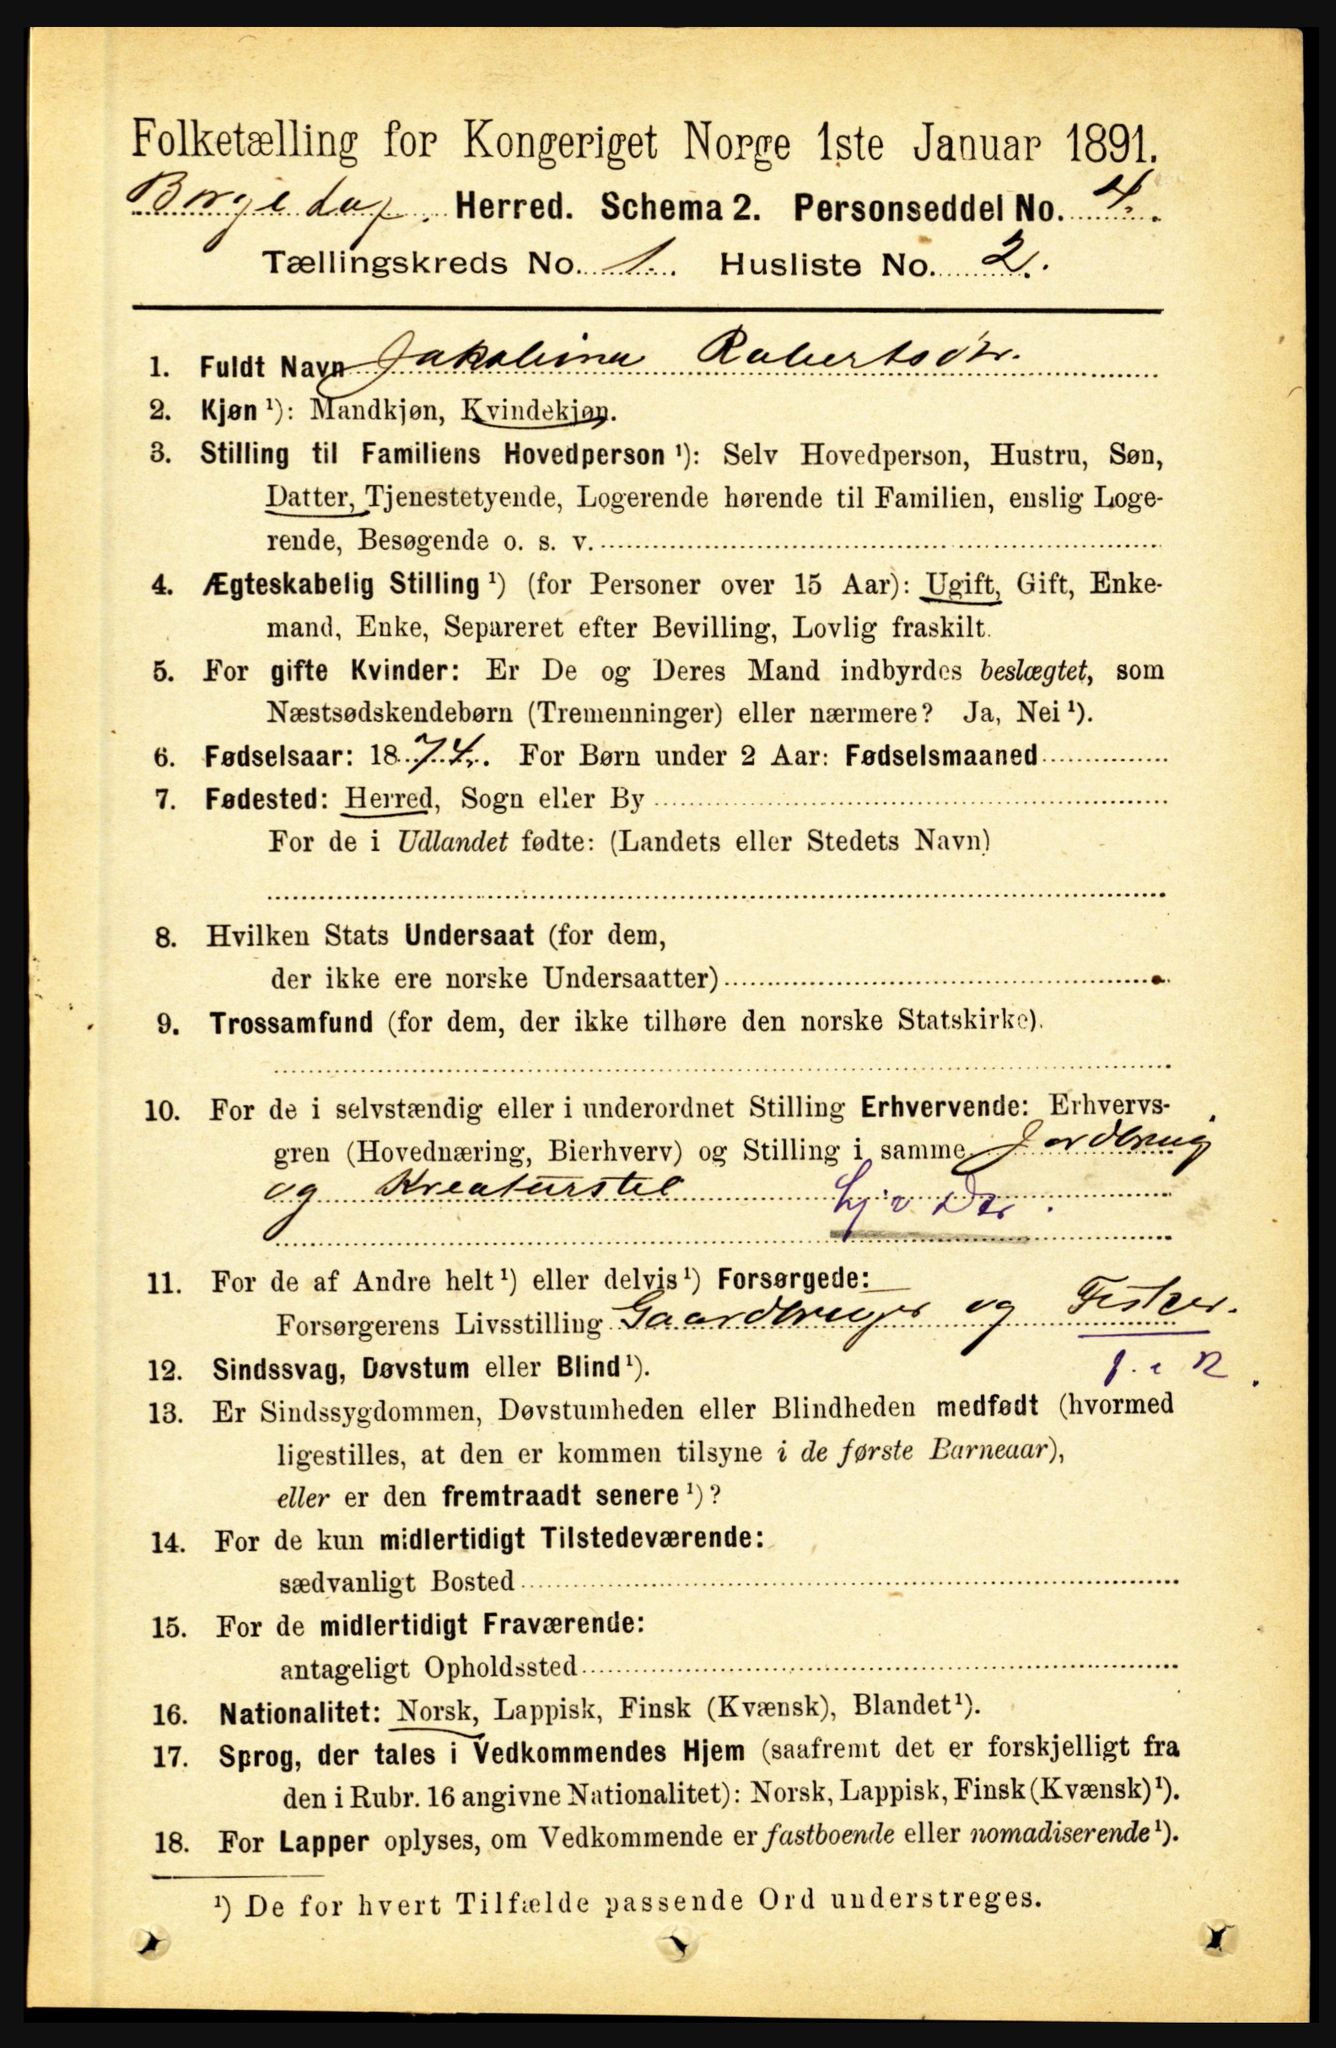 Folketælling for Kongeriget Norge 1ste Januar 1891.
Borge Herred. Schema 2. Personseddel No. 4.
Tællingskreds No. 1. Husliste No. 2.
1. Fuldt Navn Jakobina Robertsdtr.
2. Kjøn ¹): Mandkjøn, Kvindekjøn.
3. Stilling til Familiens Hovedperson ¹): Selv Hovedperson, Hustru, Søn,
Datter, Tjenestetyende, Logerende hørende til Familien, enslig Loge-
rende, Besøgende o. s. v.
4. Ægteskabelig Stilling ¹) (for Personer over 15 Aar): Ugift, Gift, Enke-
mand, Enke, Separeret efter Bevilling, Lovlig fraskilt.
5. For gifte Kvinder: Er De og Deres Mand indbyrdes beslægtet, som
Næstsødskendebørn (Tremenninger) eller nærmere? Ja, Nei ¹).
6. Fødselsaar: 1874. For Børn under 2 Aar: Fødselsmaaned
7. Fødested: Herred, Sogn eller By
For de i Udlandet fødte: (Landets eller Stedets Navn)
8. Hvilken Stats Undersaat (for dem,
der ikke ere norske Undersaatter)
9. Trossamfund (for dem, der ikke tilhøre den norske Statskirke).
10. For de i selvstændig eller i underordnet Stilling Erhvervende: Erhvervs-
gren (Hovednæring, Bierhverv) og Stilling i samme Jordbrug
og Kreaturstel
11. For de af Andre helt ¹) eller delvis ¹) Forsørgede:
Forsørgerens Livsstilling Gaardbruger og Fisker.
12. Sindssvag, Døvstum eller Blind ¹).
13. Er Sindssygdommen, Døvstumheden eller Blindheden medfødt (hvormed
ligestilles, at den er kommen tilsyne i de første Barneaar),
eller er den fremtraadt senere ¹)?
14. For de kun midlertidigt Tilstedeværende:
sædvanligt Bosted
15. For de midlertidigt Fraværende:
antageligt Opholdssted
16. Nationalitet: Norsk, Lappisk, Finsk (Kvænsk), Blandet ¹).
17. Sprog, der tales i Vedkommendes Hjem (saafremt det er forskjelligt fra
den i Rubr. 16 angivne Nationalitet): Norsk, Lappisk, Finsk (Kvænsk) ¹).
18. For Lapper oplyses, om Vedkommende er fastboende eller nomadiserende ¹).
¹) De for hvert Tilfælde passende Ord understreges.